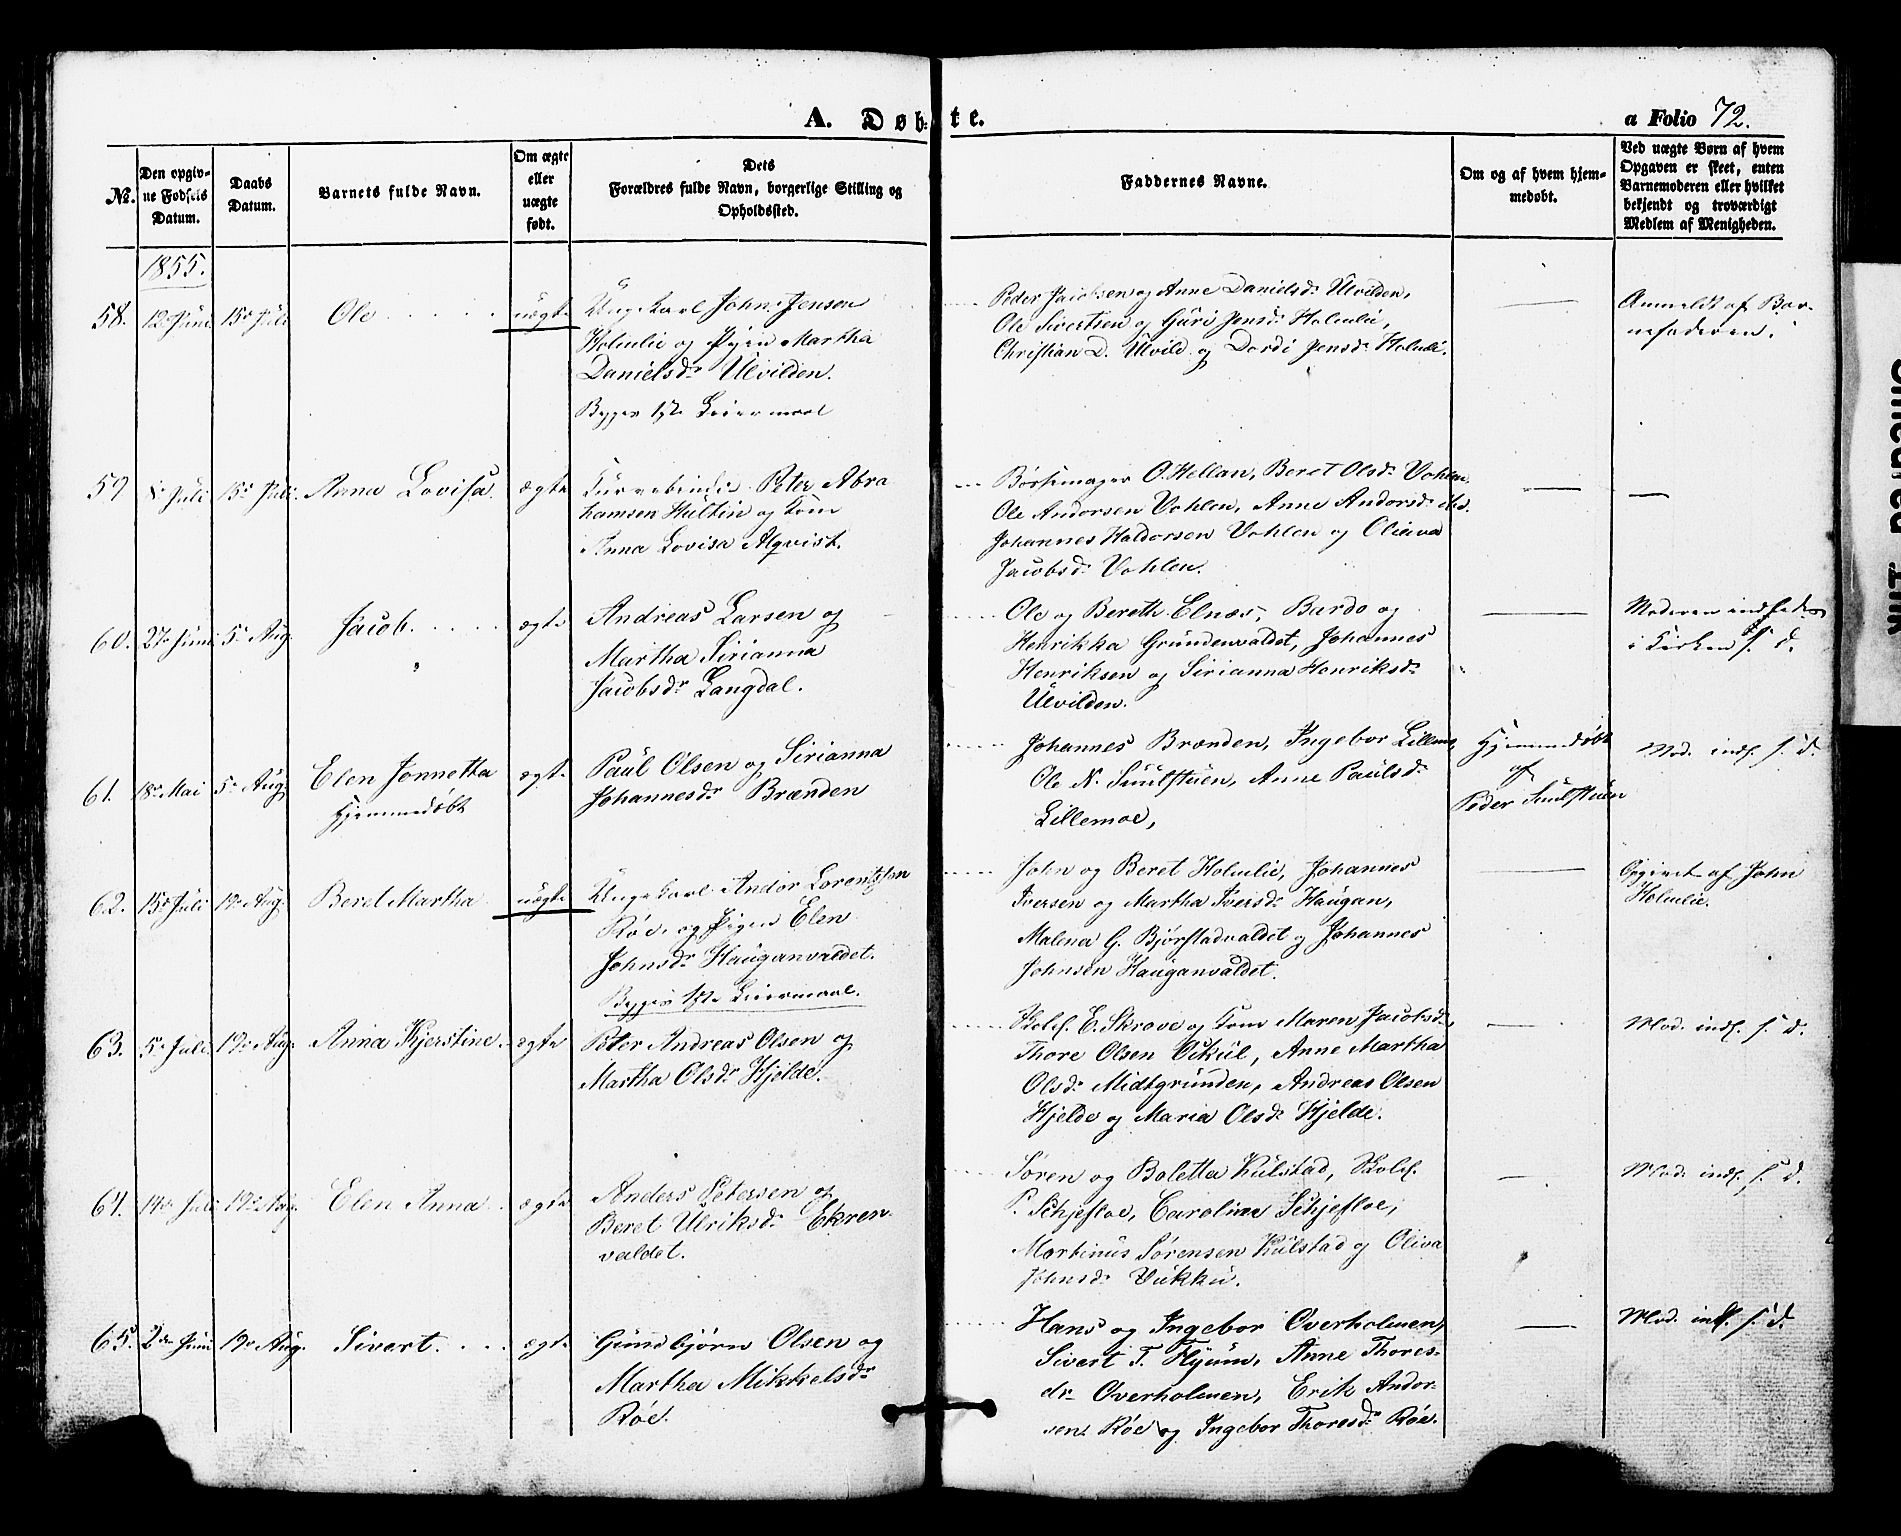 A. Døbte.
a Folio 72.
No.
Den opgivne Fødsels Datum.
Daabs Datum.
Barnets fulde Navn.
Om ægte eller uægte født.
Dets Forældres fulde Navn, borgerlige Stilling og Opholdssted.
Faddernes Navne.
Om og af hvem hjemmedøbt.
Ved uægte Børn af hvem Opgaven er skeet, enten Barnemoderen eller hvilket bekjendt og troværdigt Medlem af Menigheden.
1855.
58. 12te Juni 15de Juli Ole uægte
Ungekarl John Jensen
Holmlie og Pigen Martha
Danielsdr Ulvilden.
Begges 1ste Leiermaal
Peder Jacobsen og Anne Danielsdr Ulvilden,
Ole Sivertsen og Guri Jensdr Holmlie,
Christian D. Ulvild og Dordi Jensdr Holmli.
—
Anmeldt af Bar-
nefaderen.
59 15de Juli Anna Lovisa ægte
Kurvebinder Peter Abra
hamsen Hultin og Kone
Anna Lovisa Alqvist.
O. Hellan, Beret Olsdr Vohlen
Ole Andorsen Vohlen, Anne Andorsdr ibd.
Johannes Haldorsen Vohlen og Oliava
Jacobsdr Vohlen.
— —
60. 27de Juni 5te Aug. Jacob. ægte
Andreas Larsen og
Martha Sirianna
Jacobsdr Langdal.
Ole og Bereth Elnæs, Bardo og
Henrikka Grundenvaldet, Johannes
Henriksen og Sirianna Henriksdr
Ulvilden.
—
Moderen indledes
i Kirken s. d.
61. 18de Mai 5te Aug Elen Jonnetta ægte
Hjemmedøbt
Paul Olsen og Sirianna
Johannesdr Brænden
Johannes Brænden, Ingebor Lillemo,
Ole N. Smulstuen, Anne Paulsdr
Lillemoe,
Hjemmedøbt
af
Peder Smulstuen
Mod. indl. s. d.
62. 15de Juli 19de Aug. Beret Martha uægte
Ungekarl Andor Lorentzen
Røe, og Pigen Elen
Johnsdr Hauganvaldet.
Begges 1ste Leiermaal.
John og Beret Holmlie, Johannes
Iversen og Martha Iversdr Haugan,
Malena G. Bjørstadvaldet og Johannes
Johnsen Hauganvaldet.
—
Opgivet af John
Holmlie.
63. 5te Juli 19de Aug. Anna Kjerstine ægte
Peter Andreas Olsen og
Martha Olsdr Hjelde.
E. Skrove og Kone Maren Jacobsdr,
Thore Olsen Oikul, Anne Martha
Olsdr Midtgrunden, Andreas Olsen
Hjelde og Maria Olsdr Hjelde.
—
Mod. indl. s. d.
64. 14de Juli 19de Aug. Elen Anna ægte
Anders Petersen og
Beret Ulriksdr Ekren-
valdet.
Søren og Boletta Kulstad, Kolif.
P. Schjefloe, Carolina Schjefloe,
Martinus Sørensen Kulstad og Oliva
Johnsdr Vukku.
—
Mod. indl. s. d.
65. 2den Juni 19de Aug. Sivert. ægte
Gundbjørn Olsen og
Martha Mikkelsdr
Røe.
Hans og Ingebor Overholmen,
Sivert T. Hyum, Anne Thores-
dr Overholmen, Erik Andor-
sen Røe og Ingebor Thoresdr Røe.
—
Mod. indl. s. d.